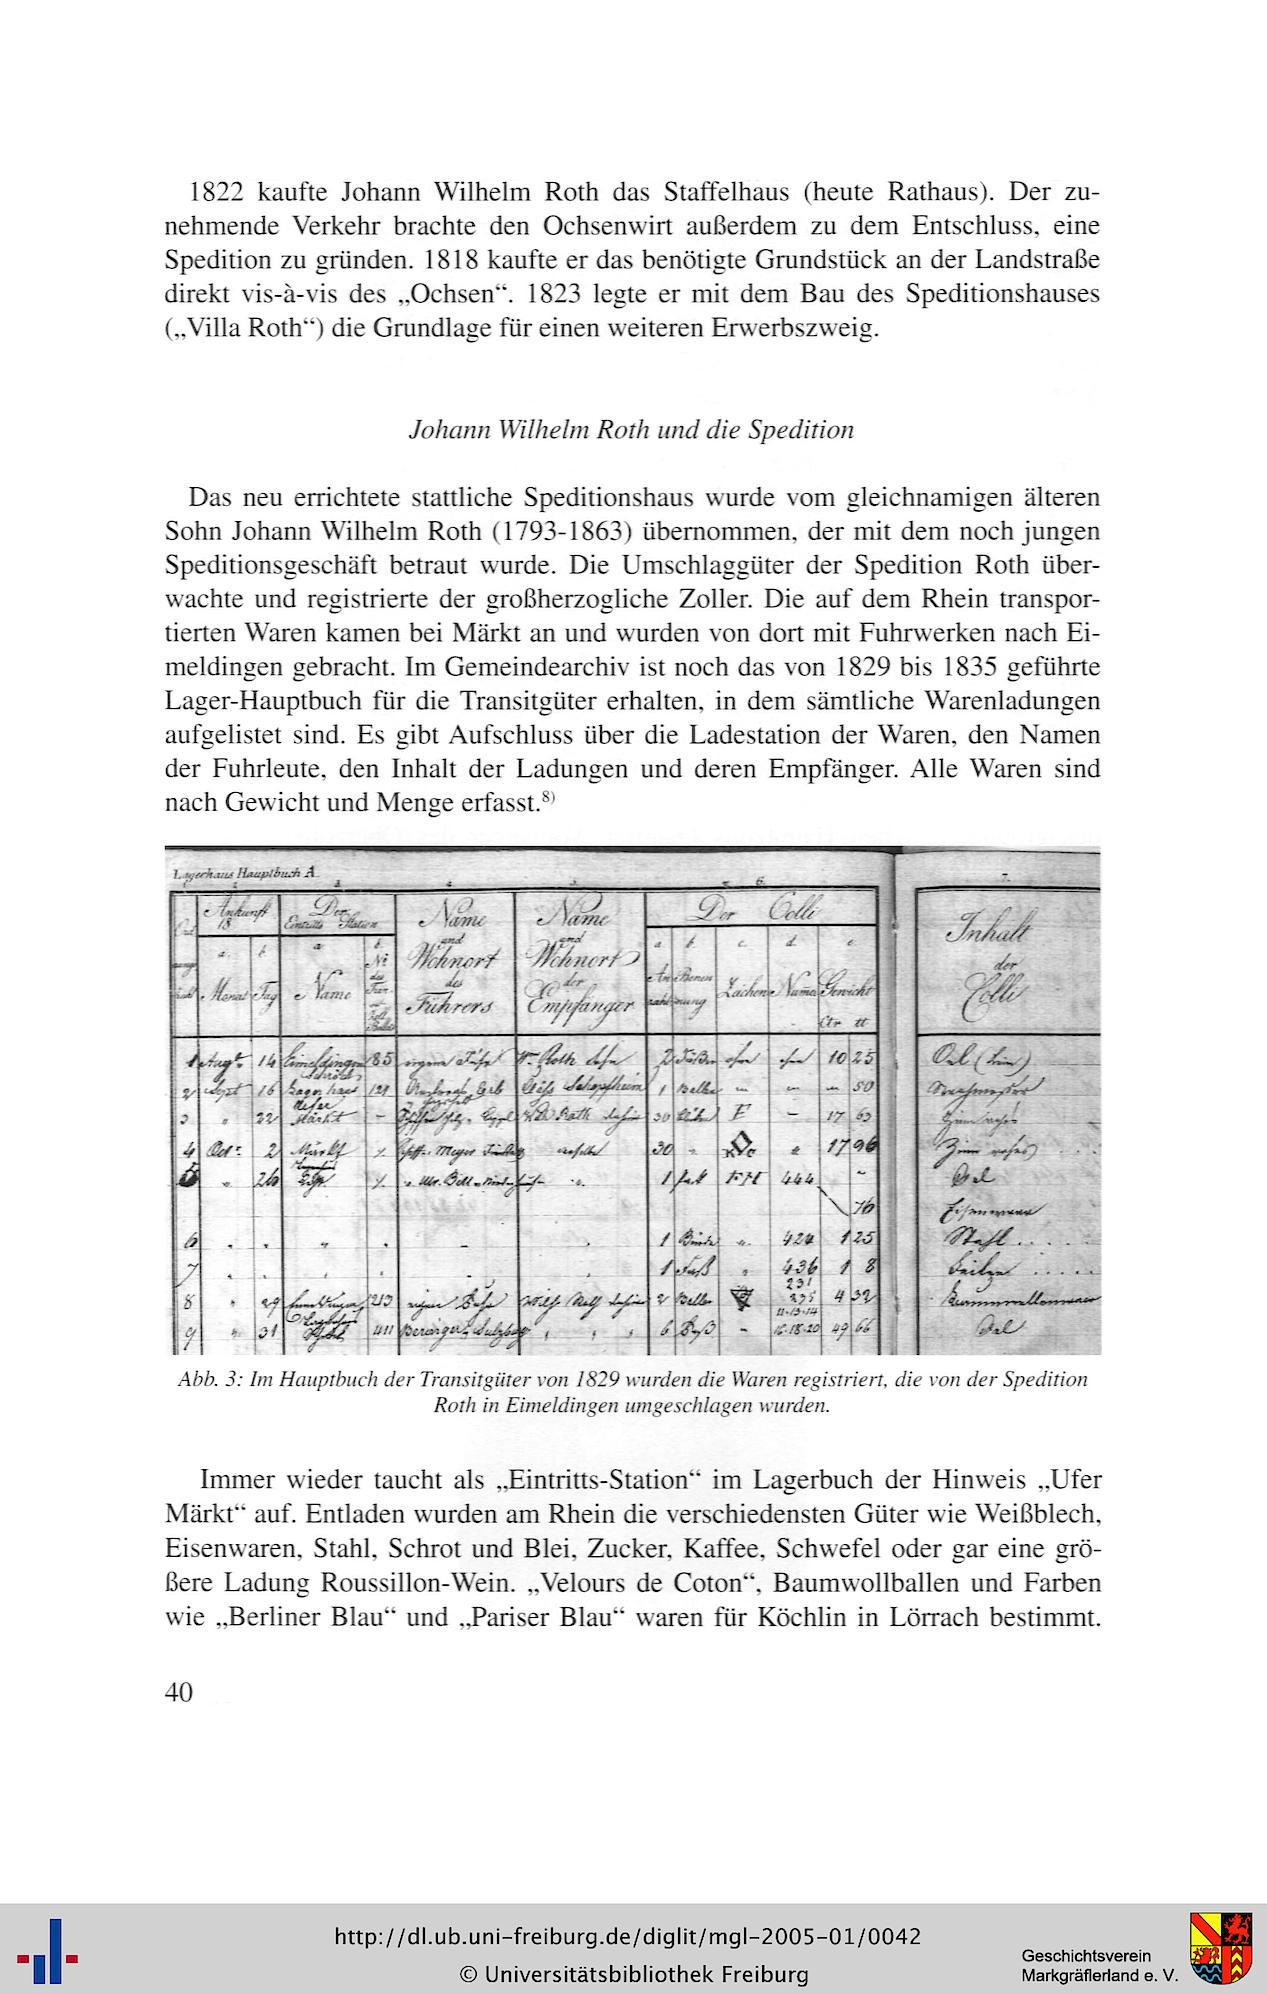 1822 kaufte Johann Wilhelm Roth das Staffelhaus (heute Rathaus). Der zu-
nehmende Verkehr brachte den Ochsenwirt außerdem zu dem Entschluss, eine
Spedition zu gründen. 1818 kaufte er das benötigte Grundstück an der Landstraße
direkt vis-à-vis des „Ochsen“. 1823 legte er mit dem Bau des Speditionshauses
(„Villa Roth“) die Grundlage für einen weiteren Erwerbszweig.
Johann Wilhelm Roth und die Spedition
Das neu errichtete stattliche Speditionshaus wurde vom gleichnamigen älteren
Sohn Johann Wilhelm Roth (1793-1863) übernommen, der mit dem noch jungen
Speditionsgeschäft betraut wurde. Die Umschlaggüter der Spedition Roth über-
wachte und registrierte der großherzogliche Zoller. Die auf dem Rhein transpor-
tierten Waren kamen bei Märkt an und wurden von dort mit Fuhrwerken nach Ei-
meldingen gebracht. Im Gemeindearchiv ist noch das von 1829 bis 1835 geführte
Lager-Hauptbuch für die Transitgüter erhalten, in dem sämtliche Warenladungen
aufgelistet sind. Es gibt Aufschluss über die Ladestation der Waren, den Namen
der Fuhrleute, den Inhalt der Ladungen und deren Empfänger. Alle Waren sind
nach Gewicht und Menge erfasst.8)
Lagerhaus Hauptbuch A.
6. 7.
Ankunft 18 Der Eintritts Station Name und Wohnort des Führers Name und Wohnort der Empfänger Der Colli Inhalt der Colli
a. b. a. b. a. b. c. d. e.
Monat Tag Name No des Zeichen Gewicht
Ctr tt
1 Augt 14 Eimeldingen 85 Wm Roth 2 10 25 Oel
2 Sept 16 121 Schopfheim 1 Ballen 50
3 22 Märkt 30 F 17 63
4 Oct 2 Märkt Meyer 30 17 96
26 1 444 Oel
76 Eisenwaren
6 1 424 1 25 Stahl
7 1 Faß 436 1 8 Feilen
8 29 213 2 Ballen 4 32 Baumwollenwaren
9 31 6 16.18.20 49 66 Oel
Abb. 3: Im Hauptbuch der Transitgüter von 1829 wurden die Waren registriert, die von der Spedition
Roth in Eimeldingen umgeschlagen wurden.
Immer wieder taucht als „Eintritts-Station“ im Lagerbuch der Hinweis „Ufer
Märkt“ auf. Entladen wurden am Rhein die verschiedensten Güter wie Weißblech,
Eisenwaren, Stahl, Schrot und Blei, Zucker, Kaffee, Schwefel oder gar eine grö-
ßere Ladung Roussillon-Wein. „Velours de Coton“, Baumwollballen und Farben
wie „Berliner Blau“ und „Pariser Blau“ waren für Köchlin in Lörrach bestimmt.
40
http://dl.ub.uni-freiburg.de/diglit/mgl-2005-01/0042
© Universitätsbibliothek Freiburg
Geschichtsverein
Markgräflerland e. V.